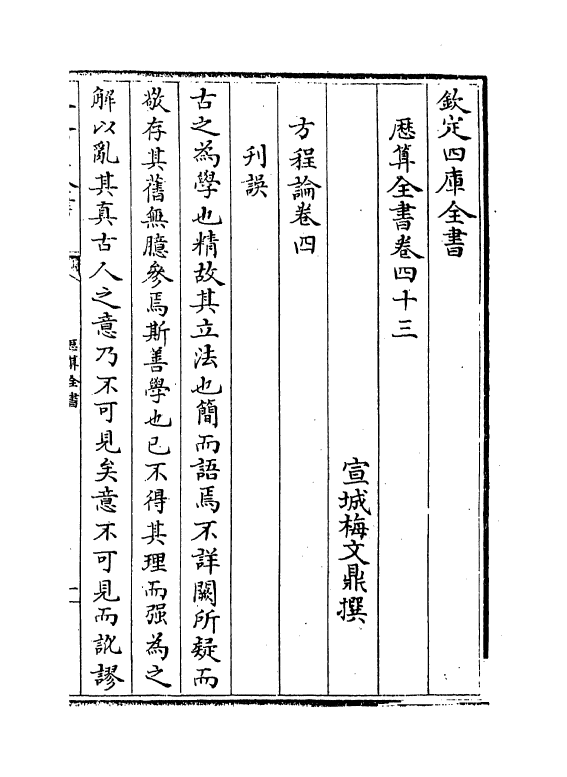 欽定四庫全書
厯算全書卷四十三
宣城梅文鼎撰
方程論卷四
刊誤
古之為學也精故其立法也簡而語焉不詳闕所疑而
敬存其舊無臆參焉斯善學也已不得其理而强為之
解以亂其真古人之意乃不可見矣意不可見而訛謬
厯算全書